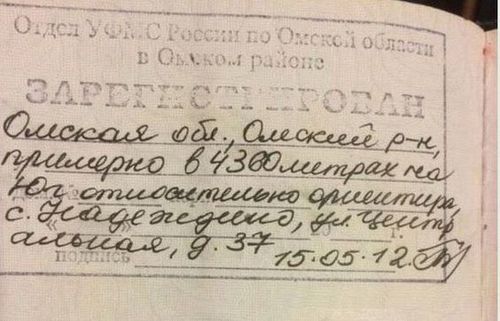 Отдел УФМС России по Омской области
в Омском районе
ЗАРЕГИСТРИРОВАН
Омская обл., Омский р-н,
примерно в 4360метрах на
Юг относительно ориентира,
с. Надеждино, ул Центр
альная, д. 37 г.
подпись 15.05.12.